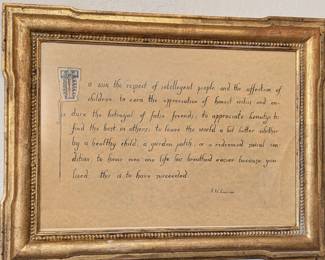 o win the respect of intelligent people and the affection of
children, to earn the appreciation of honest critics and en-
dure the betrayal of false friends; to appreciate beauty; to
find the best in others; to leave the world a bit better whether
by a healthy child, a garden patch, or a redeemed social con
dition to know even one life has breathed easier because you
lived. this is to have succeeded.